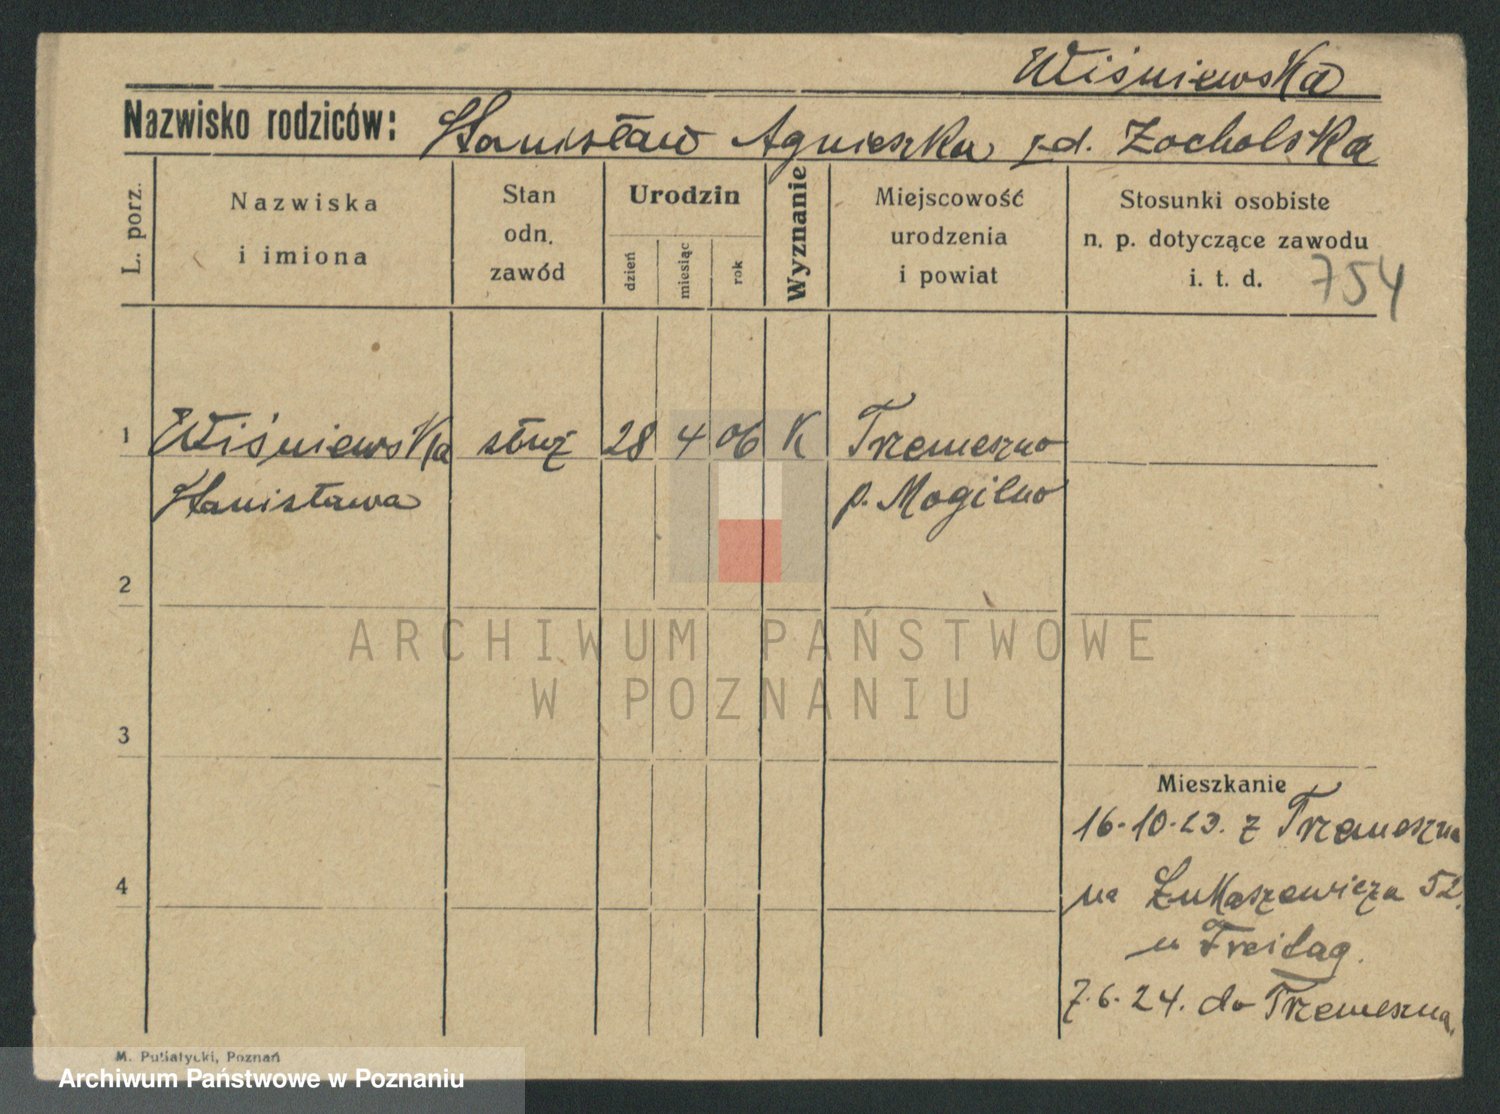 Wiśniewska
Nazwisko rodziców: Stanisław Agnieszka z d. Zocholska
L. porz.
Nazwiska
i imiona
Stan
odn.
zawód
Urodzin
dzień
miesiąc
rok
Wyznanie
Miejscowość
urodzenia
i powiat
Stosunki osobiste
n. p. dotyczące zawodu
i. t. d.
754
1 Wiśniewska służ 28 4 06 K Trzemeszno
Stanisława p. Mogilno
2
ARCHIWUM PAŃSTWOWE
W POZNANIU
3
Mieszkanie
16-10-23. z Trzemeszna
4
na Łukaszewicza 52.
u Freitag.
7.6.24. do Trzemeszna.
M. Putiatycki, Poznań
Archiwum Państwowe w Poznaniu